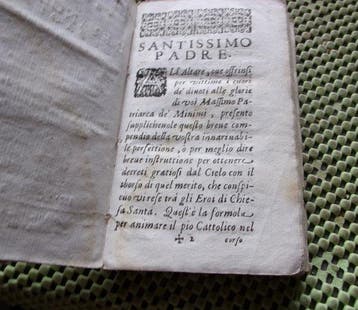 SANTISSIMO
PADRE.
All Altare, oue offrinsi
per vittime i cuori
de' diuoti alle glorie
di voi Massimo Pa-
triarca de' Minimi, presento
supplicheuole questo breue com-
pendio della vostra innarriuabi-
le perfettione, ò per meglio dire
breue instruttione per ottenere
decreti gratiosi dal Cielo con il
sborso di quel merito, che conspi-
cuo vi rese trà gli Eroi di Chie-
sa Santa. Quest'è la formola
per animare il pio Cattolico nel
✠ 2 corso